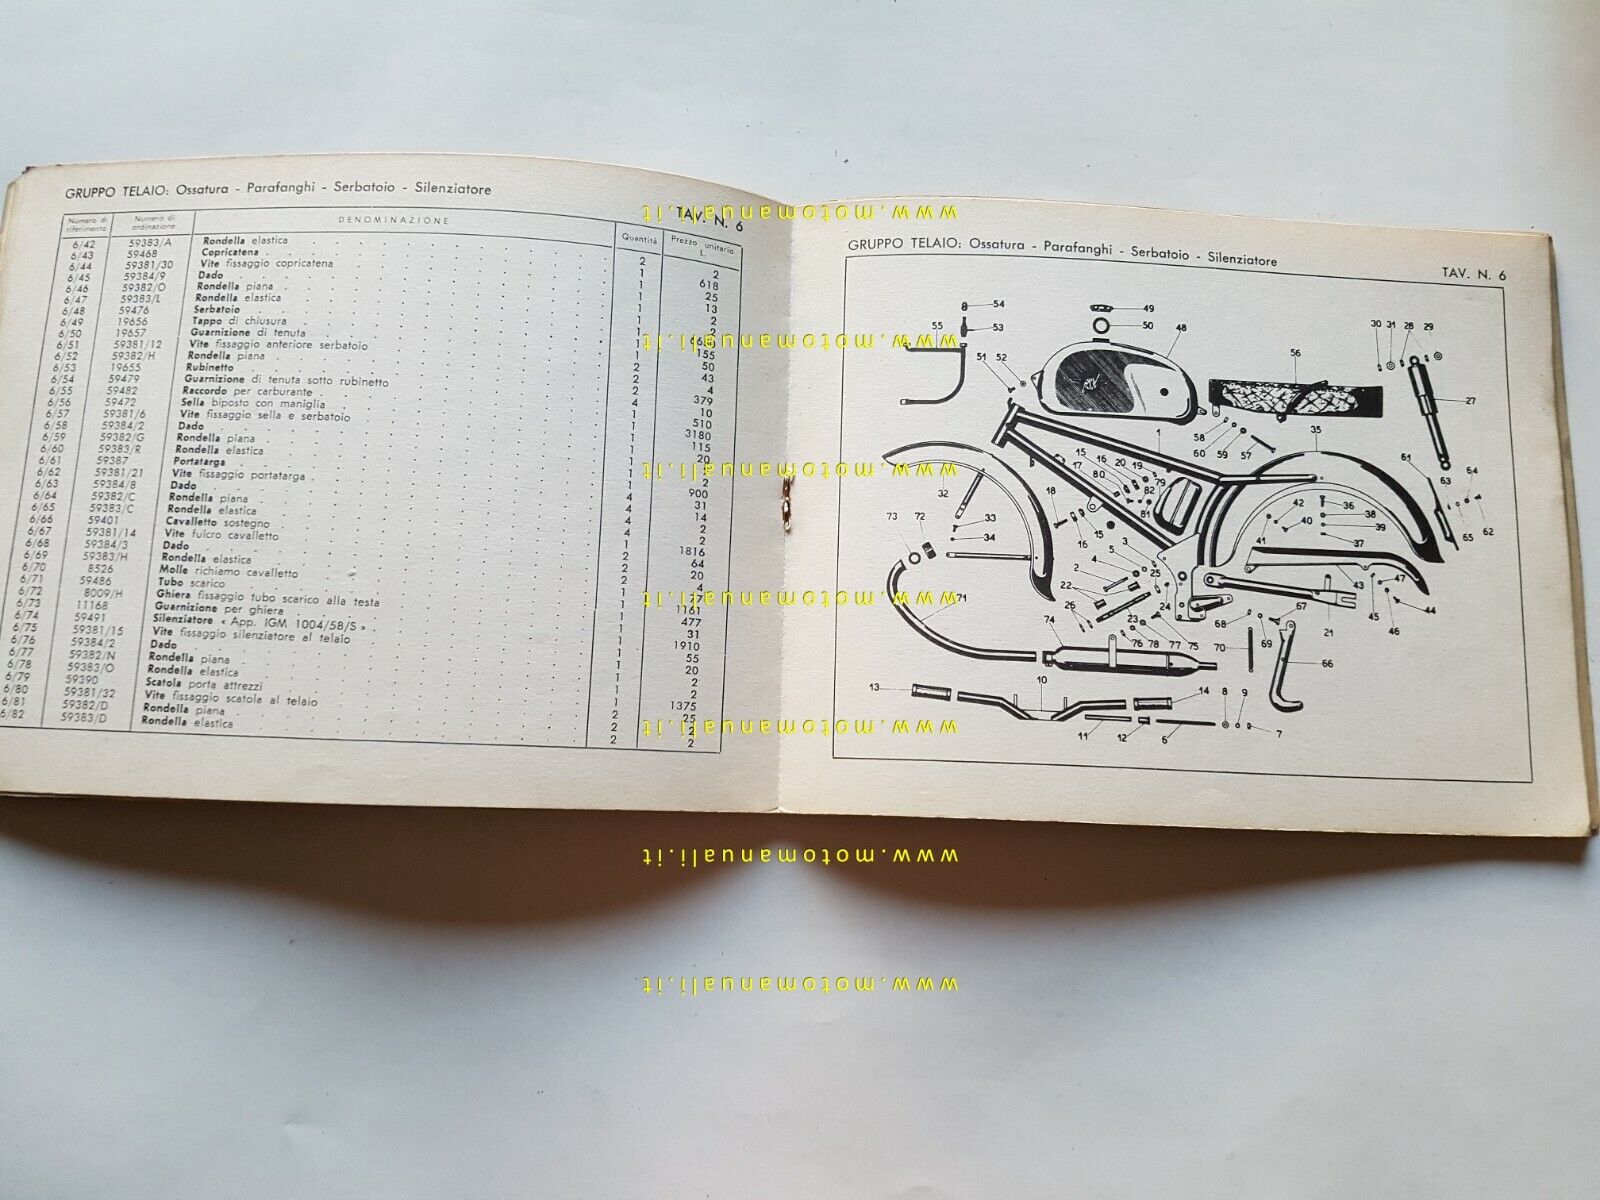 GRUPPO TELAIO: Ossatura - Parafanghi - Serbatoio - Silenziatore
TAV. N. 6
Numero di riferimento Numero di ordinazione DENOMINAZIONE Quantità Prezzo unitario L.
6/42 59383/A Rondella elastica 2 2
6/43 59468 Copricatena 1 618
6/44 59381/30 Vite fissaggio copricatena 1 25
6/45 59384/9 Dado 1 13
6/46 59382/O Rondella piana 1 2
6/47 59383/L Rondella elastica 1 2
6/48 59476 Serbatoio 1
6/49 19656 Tappo di chiusura 1 155
6/50 19657 Guarnizione di tenuta 1 50
6/51 59381/12 Vite fissaggio anteriore serbatoio 2 43
6/52 59382/H Rondella piana 2 4
6/53 19655 Rubinetto 379
6/54 59479 Guarnizione di tenuta sotto rubinetto 10
6/55 59482 Raccordo per carburante 1 510
6/56 59472 Sella biposto con maniglia 1 3180
6/57 59381/6 Vite fissaggio sella e serbatoio 1 115
6/58 59384/2 Dado 1 20
6/59 59382/G Rondella piana 1 2
6/60 59383/R Rondella elastica 1 2
6/61 59387 Portatarga 1 900
6/62 59381/21 Vite fissaggio portatarga 4 31
6/63 59384/8 Dado 4 14
6/64 59382/C Rondella piana 4 2
6/65 59383/C Rondella elastica 4 2
6/66 59401 Cavalletto sostegno 1 1816
6/67 59381/14 Vite fulcro cavalletto 2 64
6/68 59384/3 Dado 2 20
6/69 59383/H Rondella elastica 2 4
6/70 8526 Molle richiamo cavalletto 1 77
6/71 59486 Tubo scarico 1 1161
6/72 8009/H Ghiera fissaggio tubo scarico alla testa 1 477
6/73 11168 Guarnizione per ghiera 1 31
6/74 59491 Silenziatore « App. IGM 1004/58/S » 1 1910
6/75 59381/15 Vite fissaggio silenziatore al telaio 1 55
6/76 59384/2 Dado 1 20
6/77 59382/N Rondella piana 1 2
6/78 59383/O Rondella elastica 1 2
6/79 59390 Scatola porta attrezzi 1 1375
6/80 59381/32 Vite fissaggio scatola al telaio 2 25
6/81 59382/D Rondella piana 2 2
6/82 59383/D Rondella elastica 2 2
GRUPPO TELAIO: Ossatura - Parafanghi - Serbatoio - Silenziatore
TAV. N. 6
54 49
55 53 50 48 30 31 28 29
51 52 56
27
1 58 60 59 57 35
15 16 20 19 17 80 79 82 81 61 64 63
32 18 42 36 38 62
73 72 33 34 15 16 41 40 39 37 65
3 5 4 2 25 22 43 47
71 26 24 67 45 44
74 23 68 69 21 46
76 78 77 75 70 66
13 10 14 8 9
11 12 6 7
www.motomanuali.it
www.motomanuali.it
www.motomanuali.it
www.motomanuali.it
www.motomanuali.it
www.motomanuali.it
www.motomanuali.it